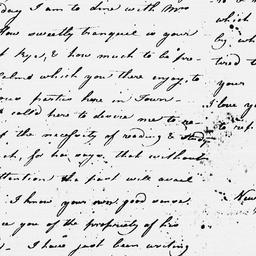 day I am to dine with Mrs
How sweetly tranquil is your
at Rye, & how much to be pre-
which you there enjoy, to
parties here in Town
called here to desire me to re-
of the necessity of reading & study
for her eyes. that without
attention the past will avail
I know your own good sense
you of the propriety of his
I have just been writing
which
by, wh
tired t
your
I love yo
to
New